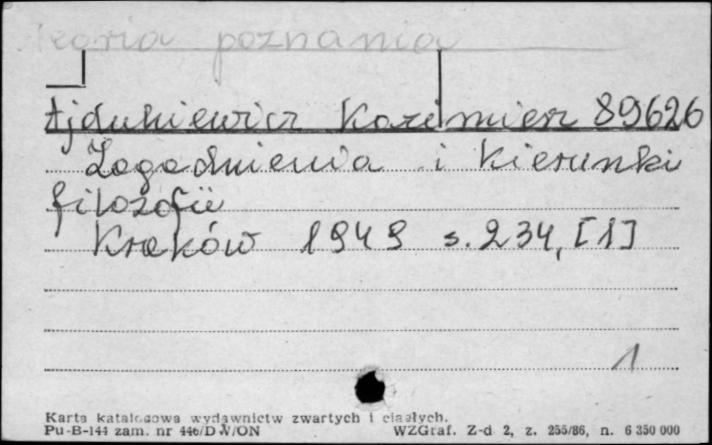 Teoria poznania
Ajdukiewicz Kazimierz 89626
Zagadnienia i kierunki
filozofii
Kraków 1949 s. 234, [1]
1
Karta katalogowa wydawnictw zwartych i ciągłych.
Pu-B-144 zam. nr 446/DW/ON WZGraf. Z-d 2, z. 255/86, n. 6 350 000